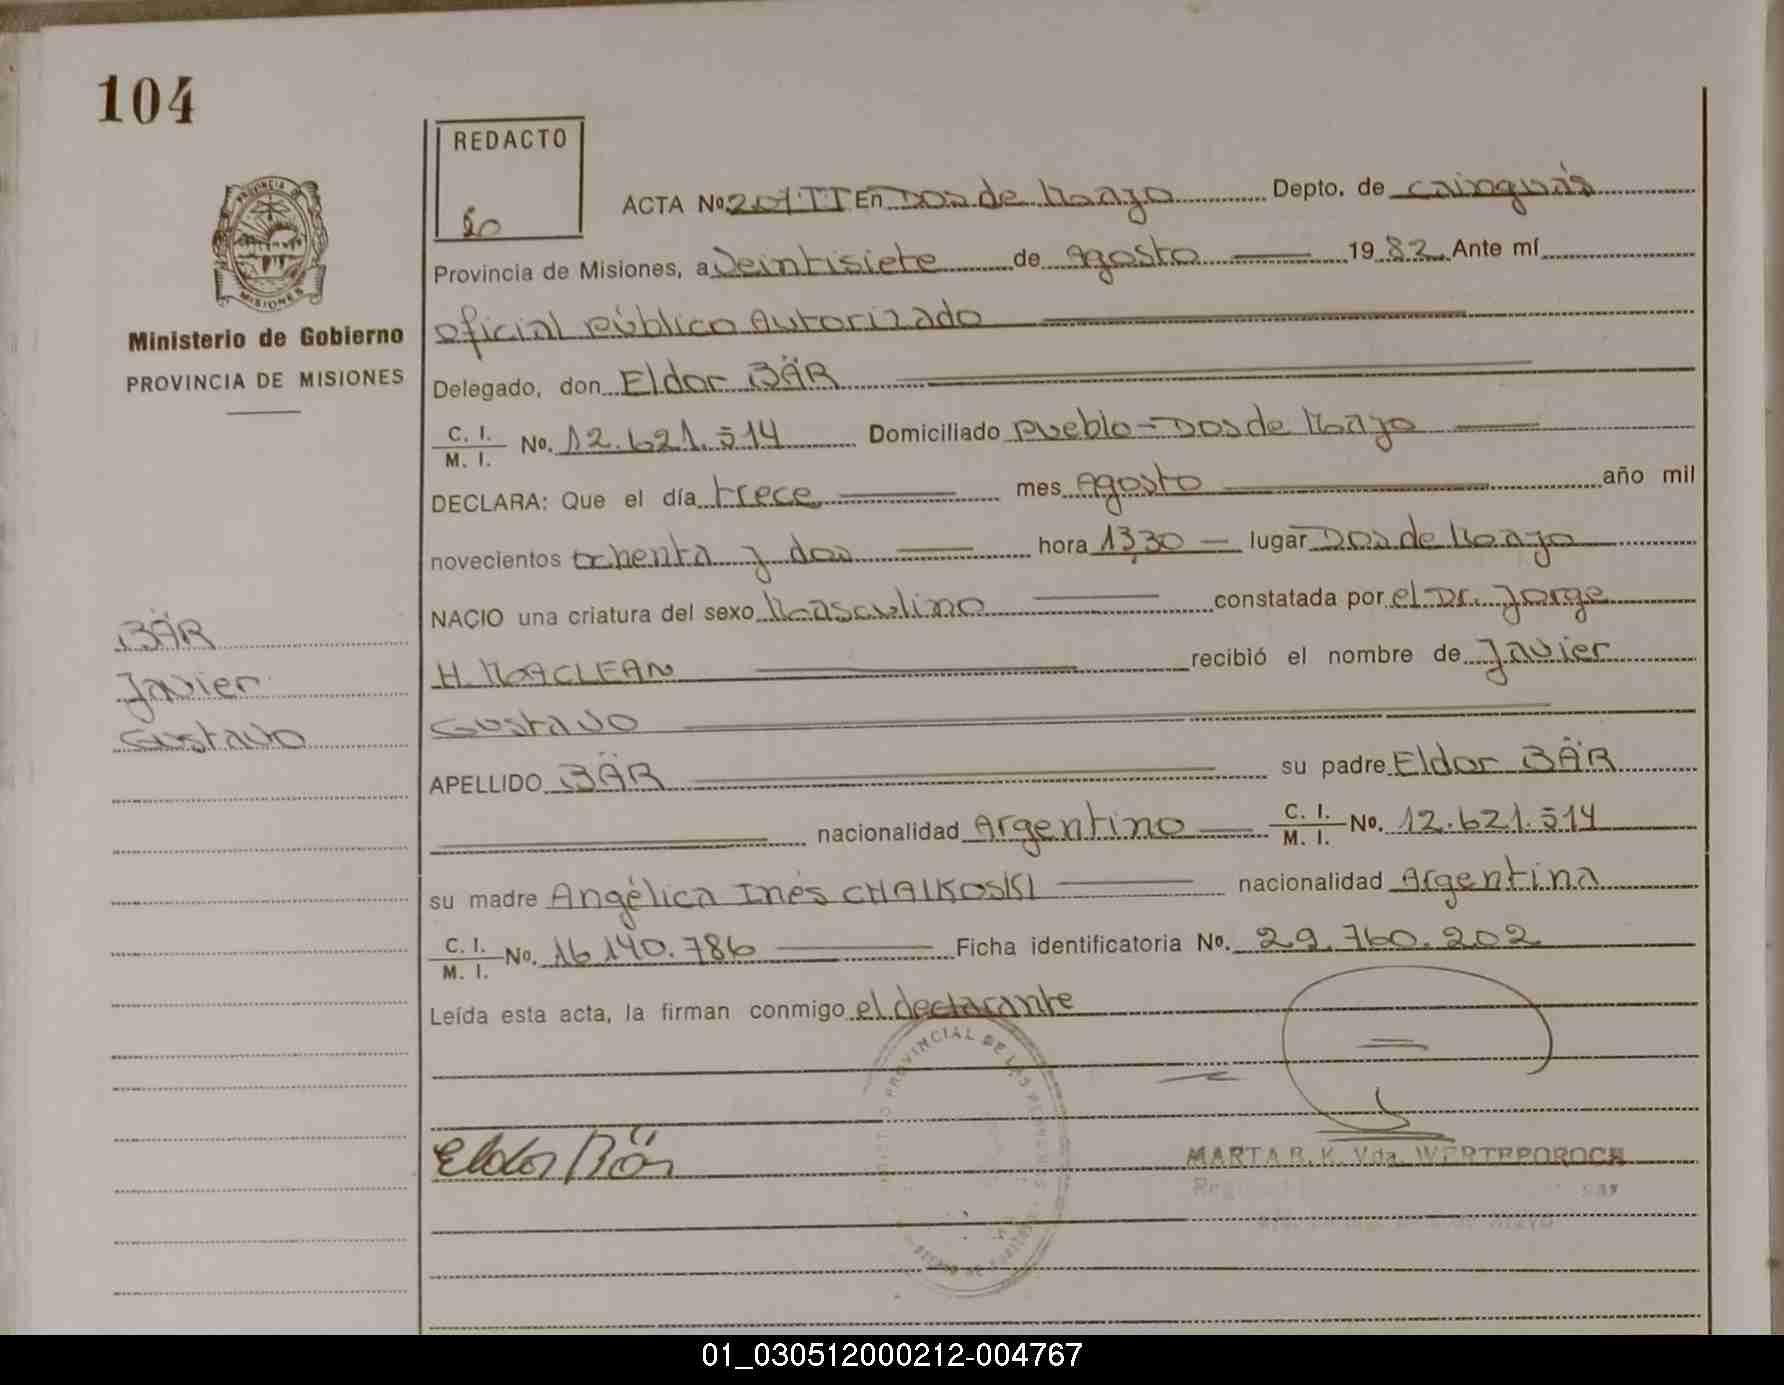 104
REDACTO
ACTA No 201 TT En Dos de Mayo Depto. de Cainguás
Provincia de Misiones, a Veintisiete de Agosto 1982 Ante mí
Oficial público Autorizado
PROVINCIA DE
MISIONES
Ministerio de Gobierno
PROVINCIA DE MISIONES
Delegado, don Eldor BÄR
C. I.
M. I. No. 12.621.514 Domiciliado Pueblo - Dos de Mayo
DECLARA: Que el día trece mes Agosto año mil
novecientos ochenta y dos hora 13,30 lugar Dos de Mayo
NACIO una criatura del sexo Masculino constatada por el Dr. Jorge
H. MACLEAN recibió el nombre de Javier
Gustavo
BÄR
Javier
Gustavo
APELLIDO BÄR su padre Eldor BÄR
nacionalidad Argentino C. I.
M. I. No. 12.621.514
su madre Angélica Inés CHAIKOSKI nacionalidad Argentina
C. I.
M. I. No. 16.140.786 Ficha identificatoria No. 29.760.202
Leída esta acta, la firman conmigo el declarante
PROVINCIAL DE LAS PERSONAS
Eldor Bär
MARTA R. K. Vda. WERTEPOROCH
01_030512000212-004767